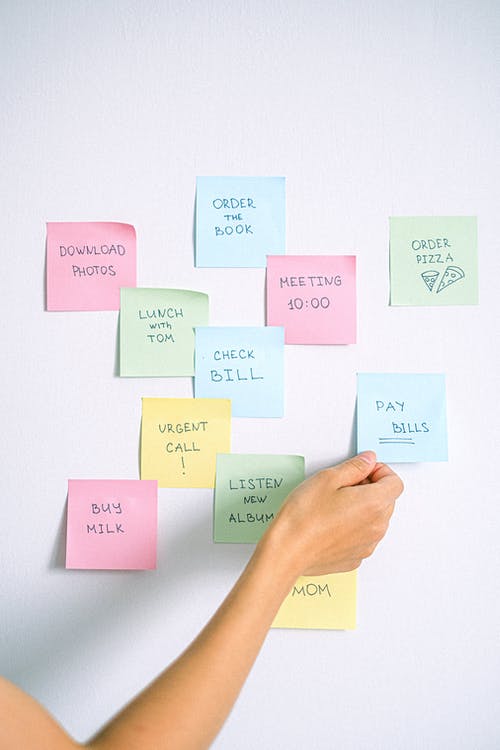 ORDER
THE
BOOK
DOWNLOAD
PHOTOS
ORDER
PIZZA
MEETING
10:00
LUNCH
with
TOM
CHECK
BILL
PAY
BILLS
URGENT
CALL
!
LISTEN
NEW
ALBUM
BUY
MILK
MOM